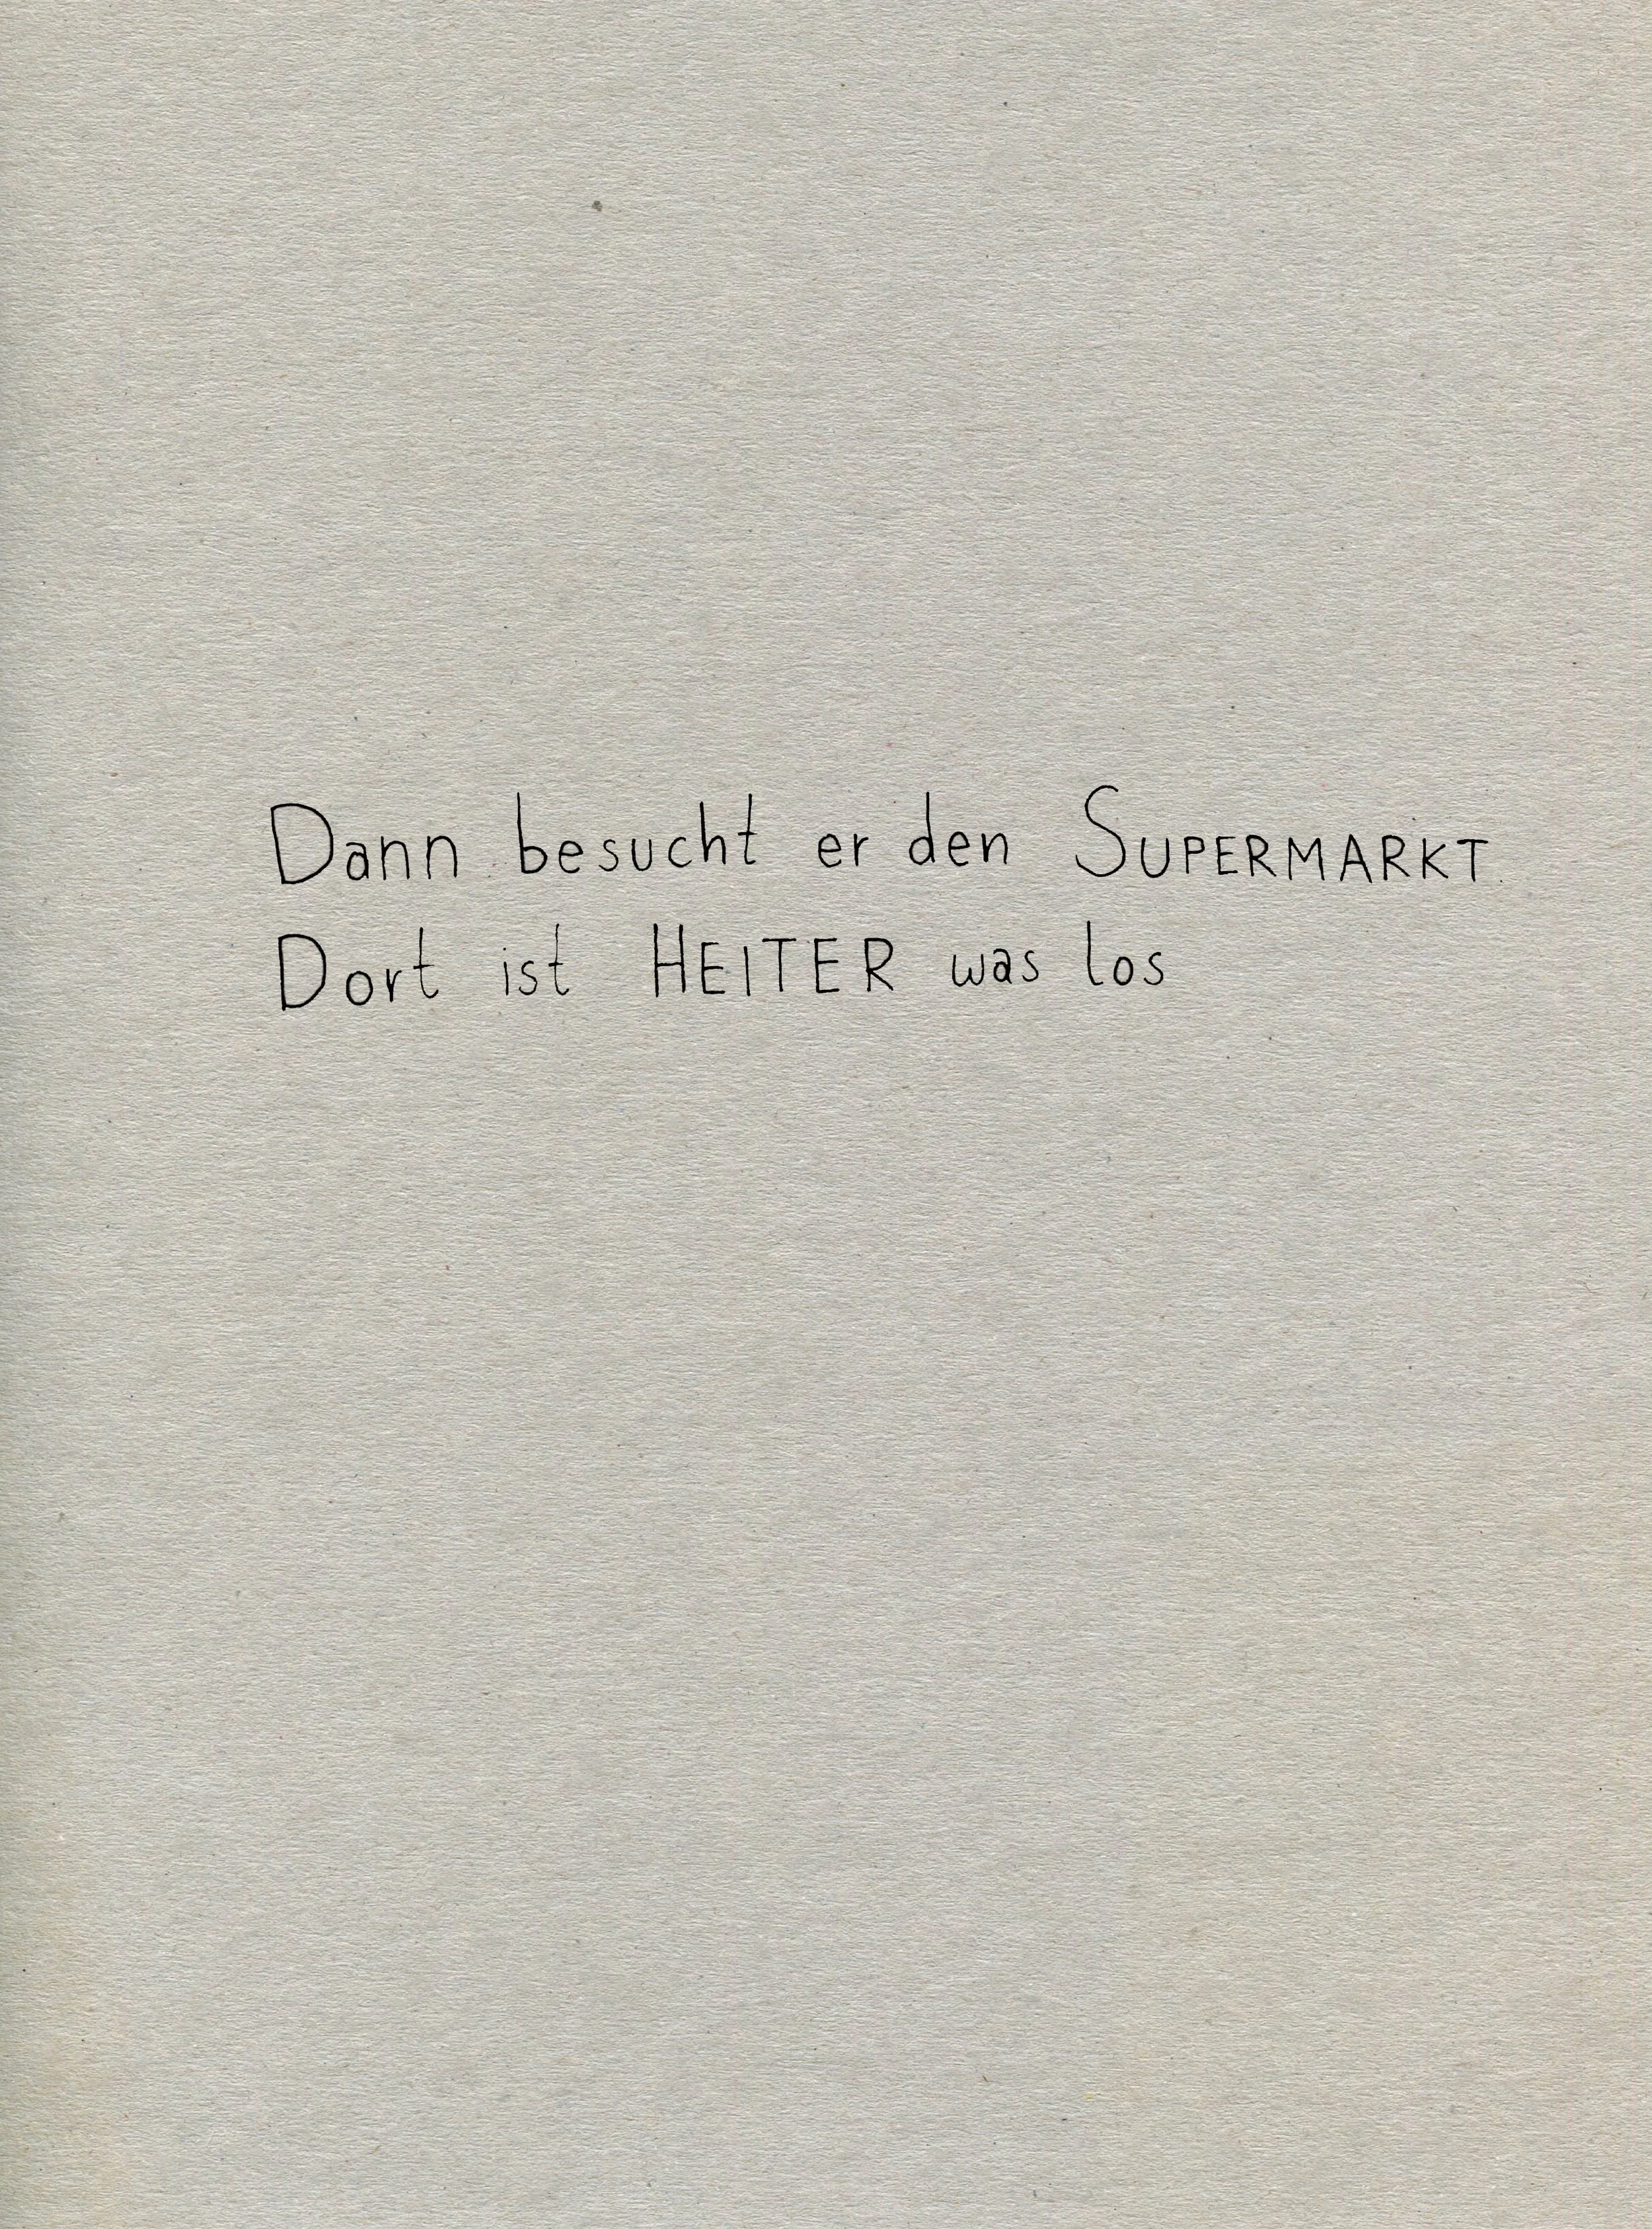 Dann besucht er den SUPERMARKT.
Dort ist HEITER was los